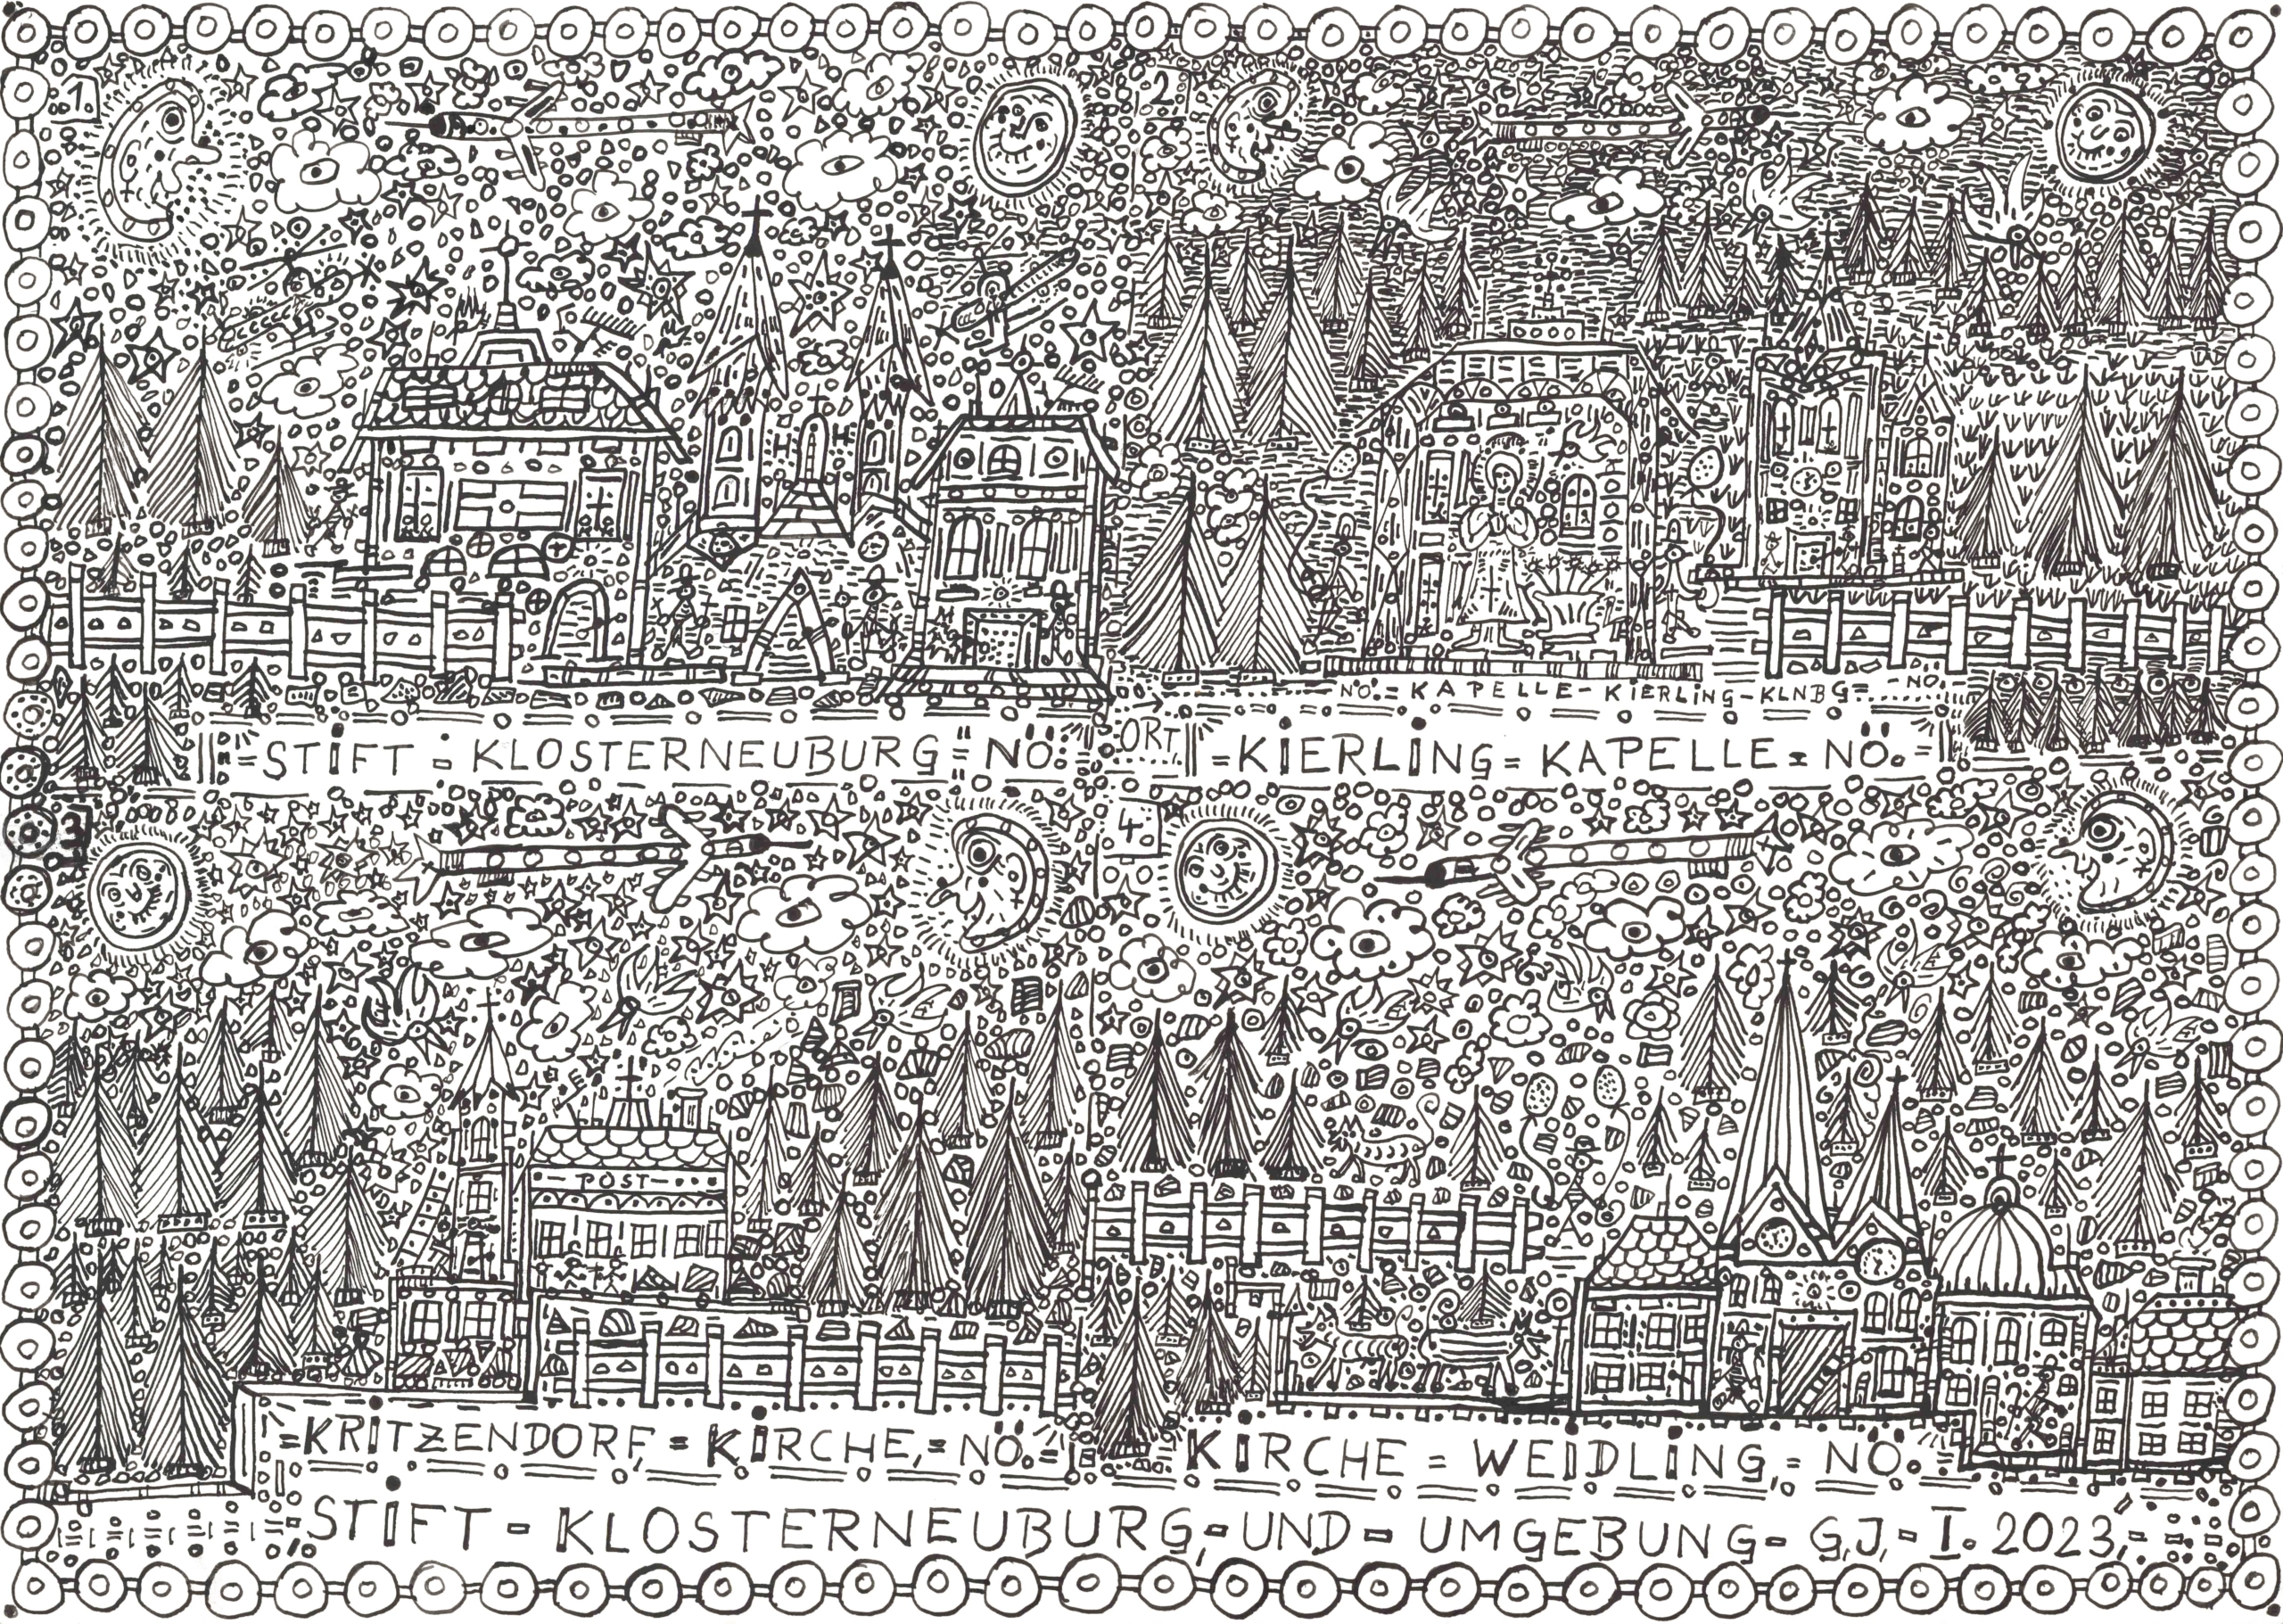 1.
2.
NÖ.=KAPELLE-KIERLING-KLNBG=
-NÖ.
=STIFT=KLOSTERNEUBURG=NÖ.
ORT
=KIERLING=KAPELLE=NÖ.=
3
4.
-POST-...
=KRITZENDORF,=KIRCHE,=NÖ.=
KIRCHE=WEIDLING,=NÖ.
STIFT-KLOSTERNEUBURG,-UND-UMGEBUNG-G.J.-I.2023,-